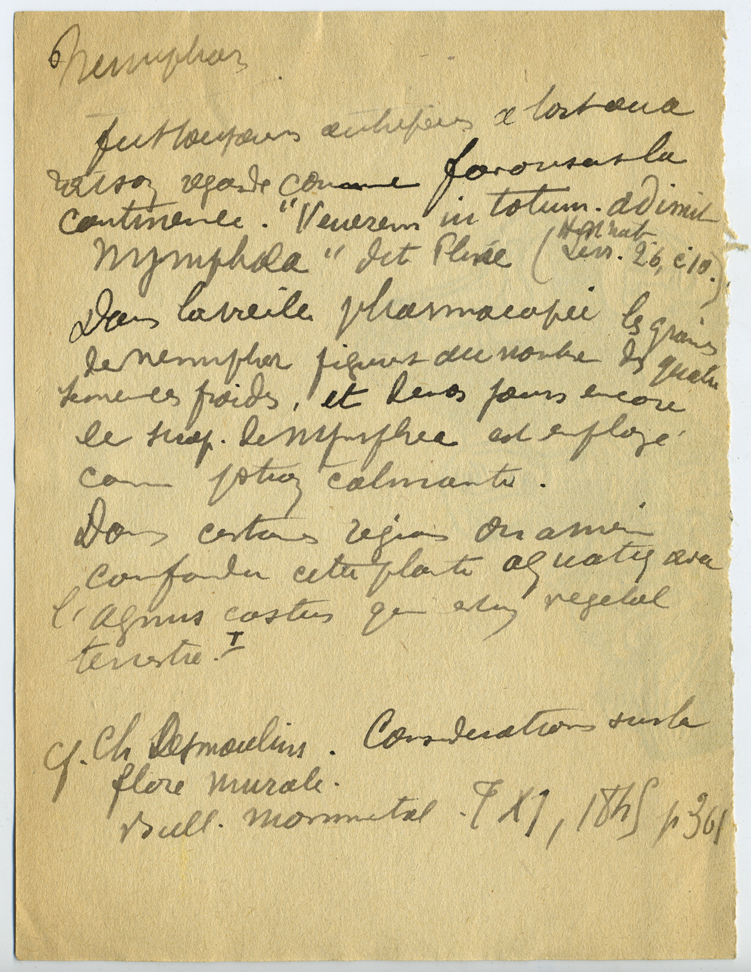 Nenuphar
fut toujours autrefois et à tort ou a
raison regarde comme favorisant la
continence. "Venerem in totum adimit
Nymphaea" dit Pline (Hist nat
Livr. 26, c 10.)
Dans la vieille pharmacopée les graines
de nenuphar figurent au nombre des quatre
semences froides, et de nos jours encore
le sirop de nymphea est employé
comme potion calmante.
Dans certaines régions on a même
confondu cette plante aquatiq avec
l'agnus castus qui est un vegetal
terrestre. I
Cf. Ch Desmoulins. Considerations sur la
flore murale.
Bull. Monumetal. T XI, 1845 p 361